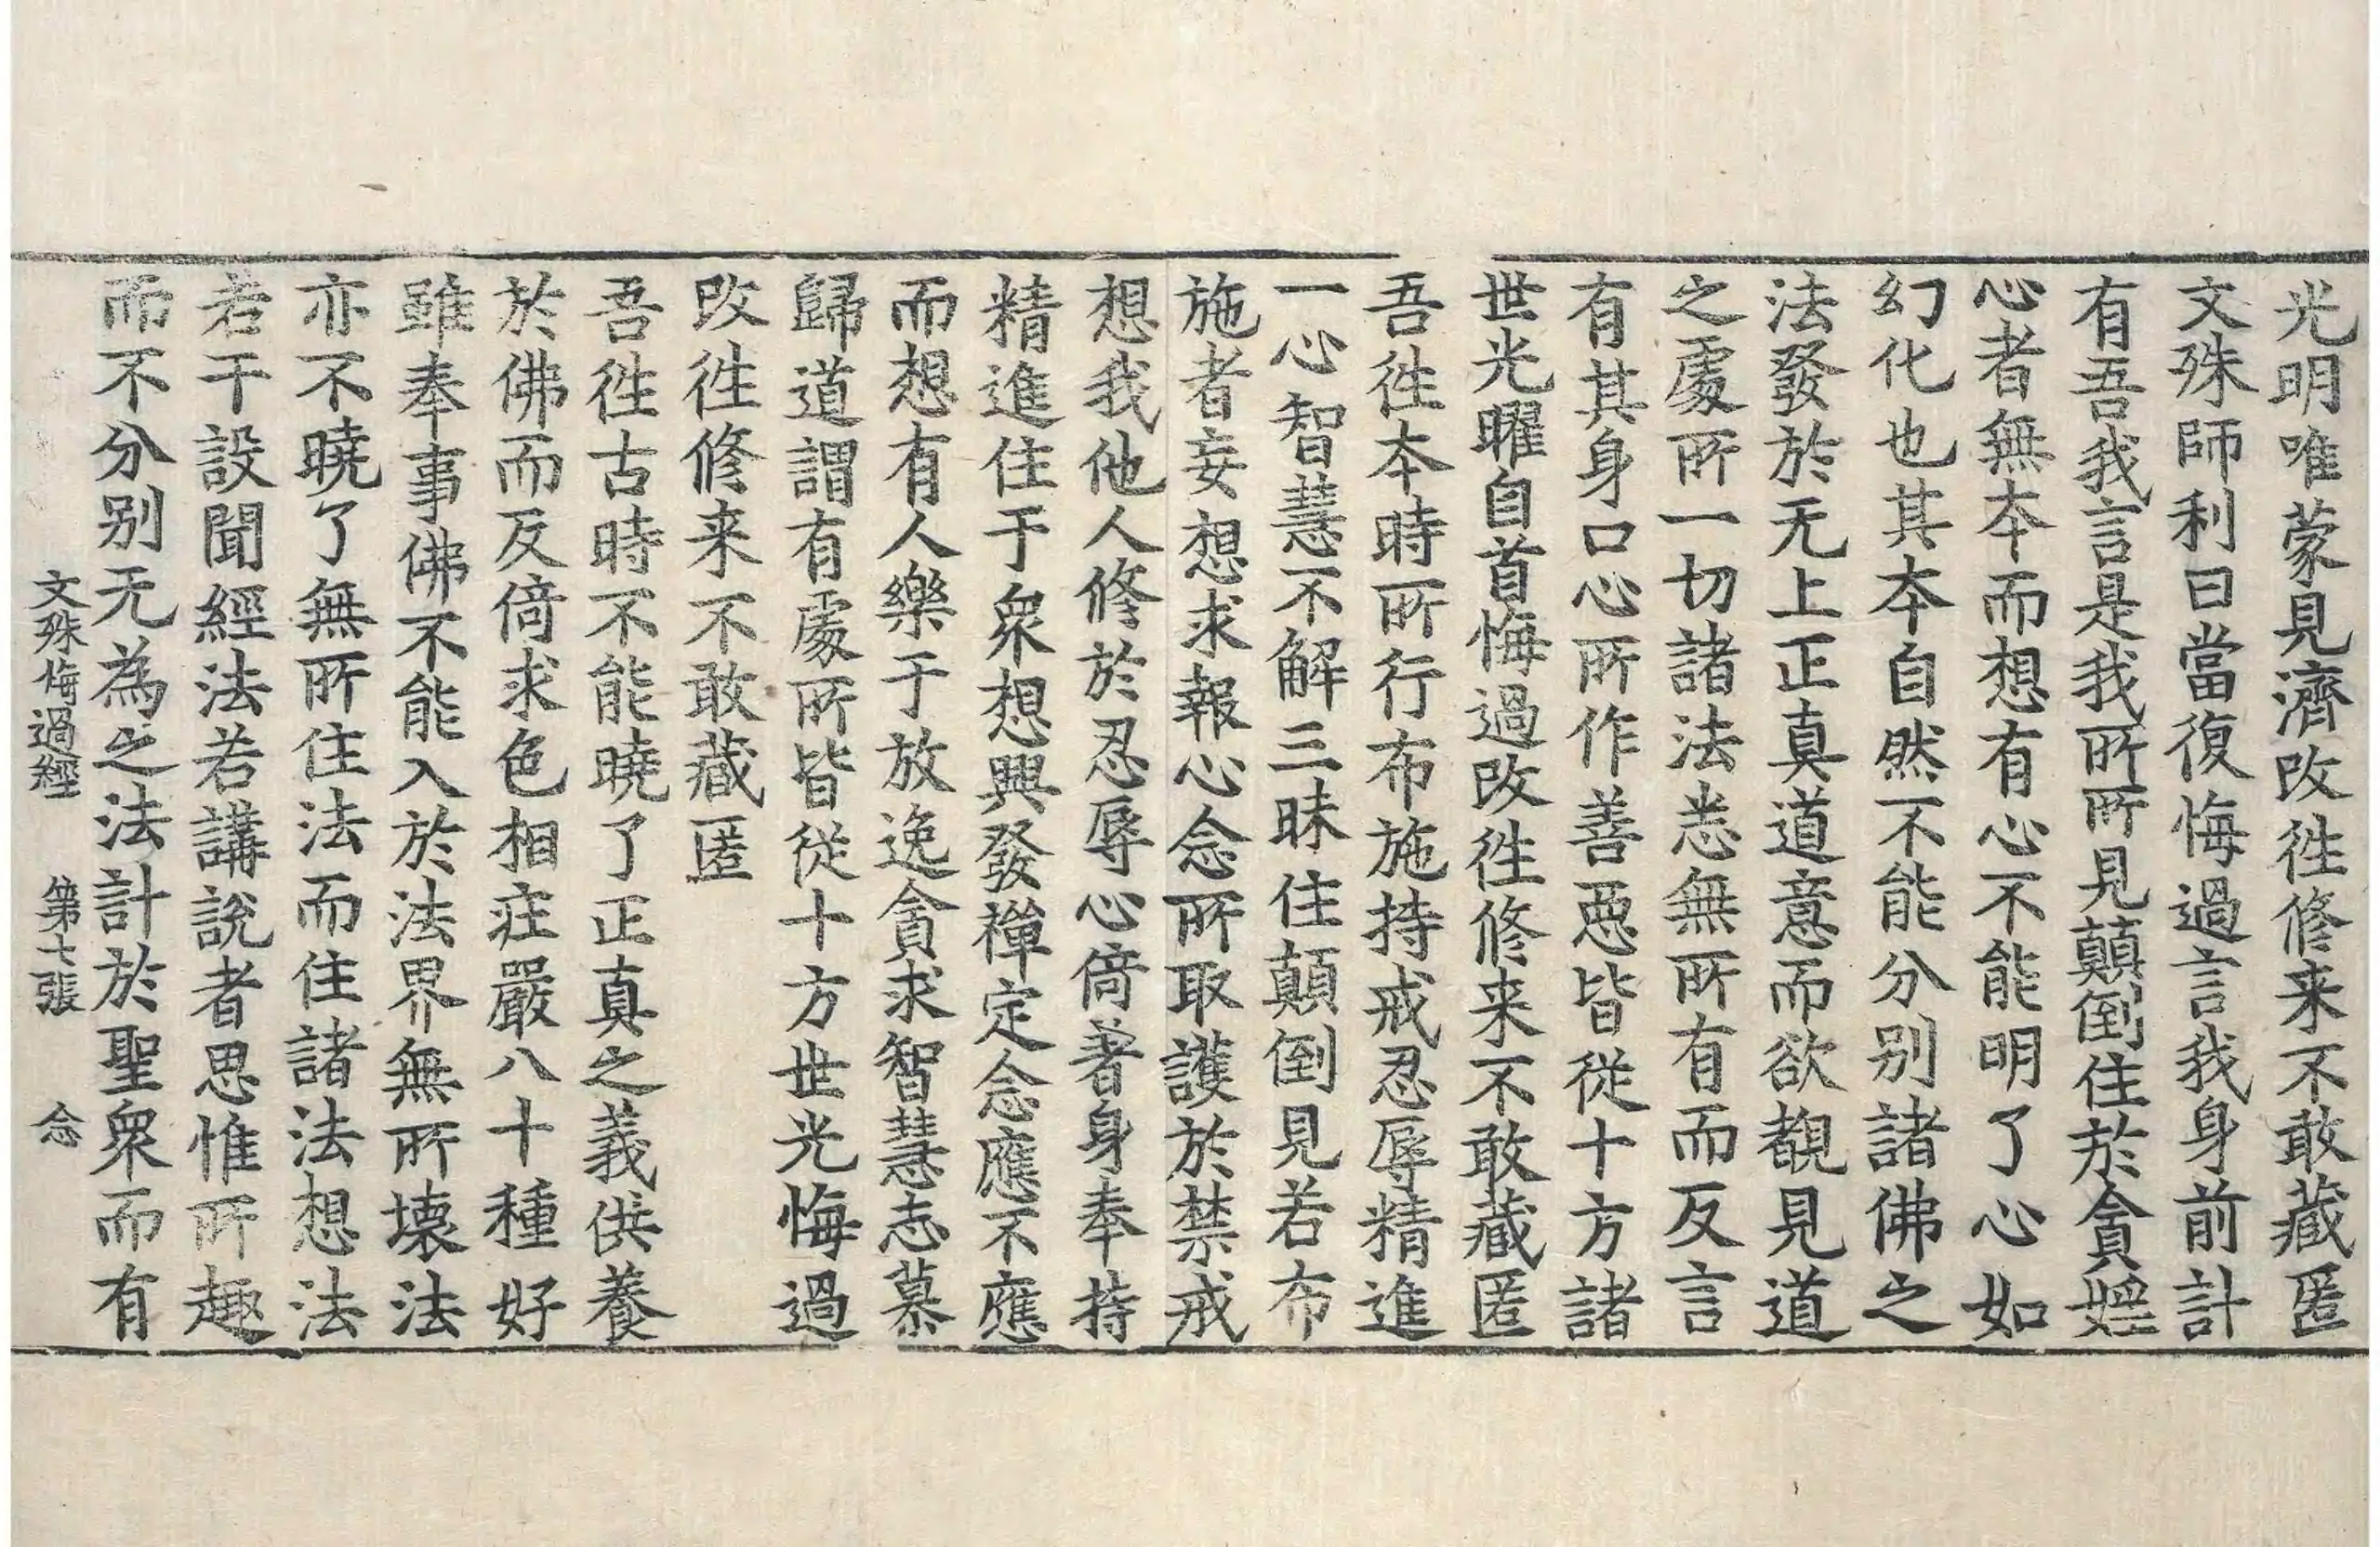 光明唯蒙見濟改徃修来不敢藏匿
文殊師利曰當復悔過言我身前計
有吾我言是我所所見顛倒住於貪婬
心者無本而想有心不能明了心如
幻化也其本自然不能分别諸佛之
法發於无上正真道意而欲覩見道
之處所一切諸法悉無所有而反言
有其身口心所作善惡皆從十方諸
世光曜自首悔過改徃修来不敢藏匿
吾徃本時所行布施持戒忍辱精進
一心智慧不解三昧住顛倒見若布
施者妄想求報心念所取護於禁戒
想我他人修於忍辱心倚著身奉持
精進住于衆想興發禪定念應不應
而想有人樂于放逸貪求智慧志慕
歸道謂有處所皆從十方世光悔過
改徃修来不敢藏匿
吾徃古時不能曉了正真之義供養
於佛而反倚求色相莊嚴八十種好
雖奉事佛不能入於法界無所壊法
亦不曉了無所住法而住諸法想法
若干設聞經法若講說者思惟所趣
而不分别无為之法計於聖衆而有
文殊悔過經 第七張 念